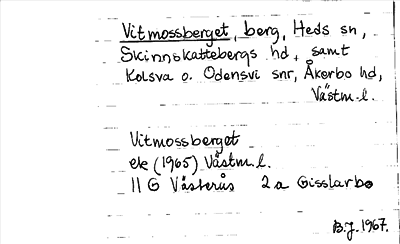 Vitmossberget, berg, Heds sn,
Skinnskattebergs hd, samt
Kolsva o. Odensvi snr, Åkerbo hd,
Västm.l.
Vitmossberget
ek (1965) Västm.l.
11 G Västerås 2a Gisslarbo
B.J. 1967.